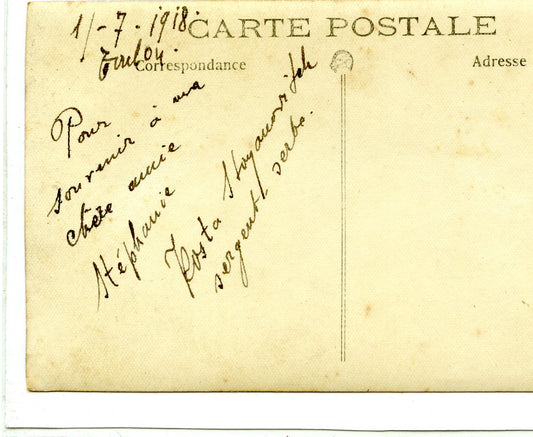 1/-7-1918.
Toulon.
CARTE POSTALE
Correspondance
Adresse
Pour
souvenir à ma
chère amie
Stéphanie
Kosta Stoyanovitch
sergent, serbe.